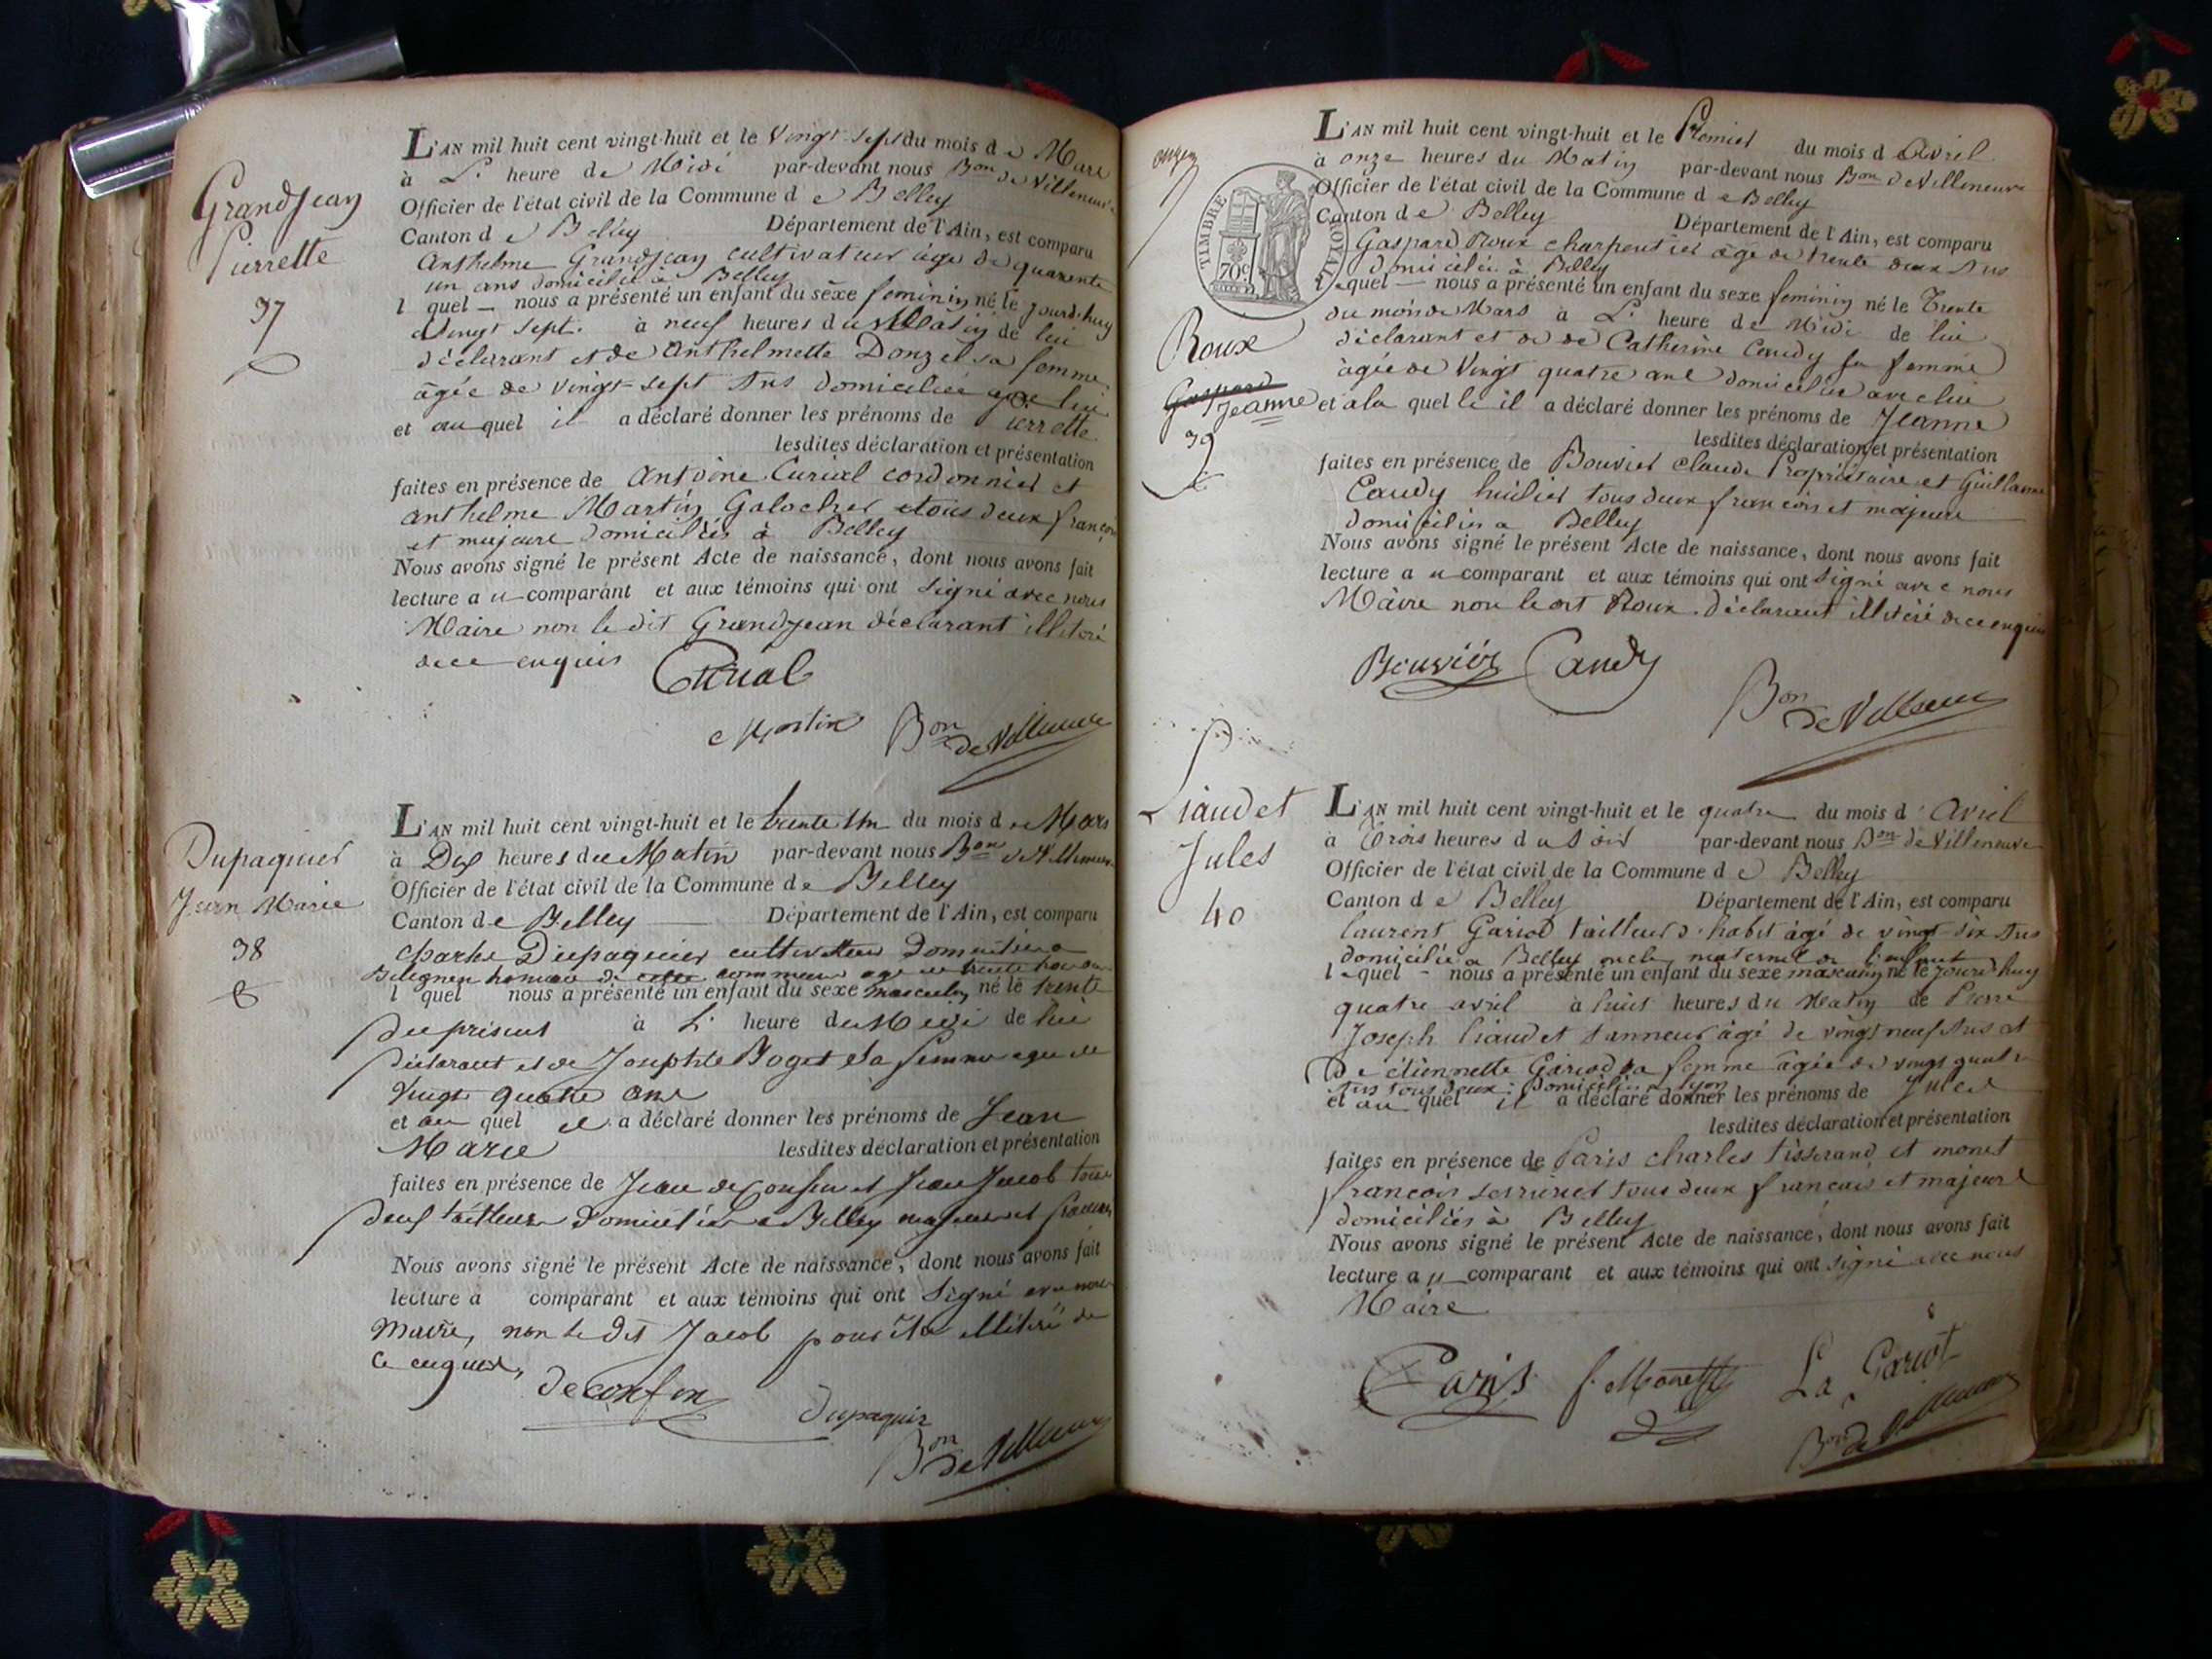 Grandjean
Pierrette
37
L'AN mil huit cent vingt-huit et le Vingt-sept du mois de Mars
à L' heure de Midi par-devant nous Bon de Villeneuve
Officier de l'état civil de la Commune de Belley
Canton de Belley Département de l'Ain, est comparu
Anthelme Grandjean cultivateur âgé de quarante
un ans domicilié à Belley
l quel — nous a présenté un enfant du sexe feminin né le jourd'huy
Vingt sept. à neuf heures du Matin de lui
déclarant et de Anthelmette Donzel sa femme
âgée de vingt-sept Ans domiciliée avec lui
et au quel il a déclaré donner les prénoms de Pierrette
lesdites déclaration et présentation
faites en présence de Antoine Curial cordonnier et
anthelme Martin Galocher tous deux françois
et majeure domiciliés à Belley
Nous avons signé le présent Acte de naissance, dont nous avons fait
lecture au comparant et aux témoins qui ont signé avec nous
Maire non le dit Grandjean déclarant illiteré
de ce enquis
Curial
Martin Bon de Villeneuve
Dupaquier
Jean Marie
38
L'AN mil huit cent vingt-huit et le trente Un du mois de Mars
à Dix heures du Matin par-devant nous Bon de Villeneuve
Officier de l'état civil de la Commune de Belley
Canton de Belley Département de l'Ain, est comparu
Charles Dupaquier cultivateur Domicilié a
commune agé de trente
l quel nous a présenté un enfant du sexe masculin né le trente
du présent à L' heure du Midi de lui
déclarant et de Josephte Boget sa femme agée de
Vingt quatre ans
et au quel il a déclaré donner les prénoms de Jean
Marie lesdites déclaration et présentation
faites en présence de Jean de Confin et Jean Jacob tous
deux tailleurs domiciliés a Belley majeurs et francais
Nous avons signé le présent Acte de naissance, dont nous avons fait
lecture a comparant et aux témoins qui ont signé avec nous
Maire, non le dit Jacob pour être illiteré de
ce enquis,
deconfin
Dupaquier
Bon de Villeneuve
onzen
TIMBRE ROYALE
70c
Roux
Gaspard
Jeanne
39
L'AN mil huit cent vingt-huit et le Premier du mois d'Avril
à onze heures du Matin par-devant nous Bon de Villeneuve
Officier de l'état civil de la Commune de Belley
Canton de Belley Département de l'Ain, est comparu
Gaspard Roux charpentier âgé de trente deux Ans
domicilié à Belley
lequel — nous a présenté un enfant du sexe feminin né le Trente
du mois de Mars à L' heure de Midi de lui
déclarant et de de Catherine Caudy sa femme
âgée de Vingt quatre ans domiciliée avec lui
et a la quelle il a déclaré donner les prénoms de Jeanne
lesdites déclaration et présentation
faites en présence de Bouvier claude Propriétaire et Guillaume
Caudy huilier tous deux françois et majeure
domiciliés a Belley
Nous avons signé le présent Acte de naissance, dont nous avons fait
lecture au comparant et aux témoins qui ont signé avec nous
Maire non le dit Roux. déclarant illiteré de ce enquis
Bouvier Caudy
Bon de Villeneuve
Liaudet
Jules
40
L'AN mil huit cent vingt-huit et le quatre du mois d'avril
à Trois heures du Soir par-devant nous Bon de Villeneuve
Officier de l'état civil de la Commune de Belley
Canton de Belley Département de l'Ain, est comparu
laurent Gariod tailleur d'habit âgé de vingt six Ans
domicilié a Belley oncle maternel de l'enfant
lequel - nous a présenté un enfant du sexe masculin né le jourd'huy
quatre avril à huit heures du Matin de Pierre
Joseph liaudet tanneur âgé de vingt neuf Ans et
De étiennette Gariod sa femme âgée de vingt quatre
Ans tous deux domiciliés a Lyon
et au quel il a déclaré donner les prénoms de Jules
lesdites déclaration et présentation
faites en présence de Paris charles tisserand et monet
françois serrurier tous deux français et majeure
domiciliés à Belley
Nous avons signé le présent Acte de naissance, dont nous avons fait
lecture au comparant et aux témoins qui ont signé avec nous
Maire
Paris f. Monet La Gariot
Bon de Villeneuve